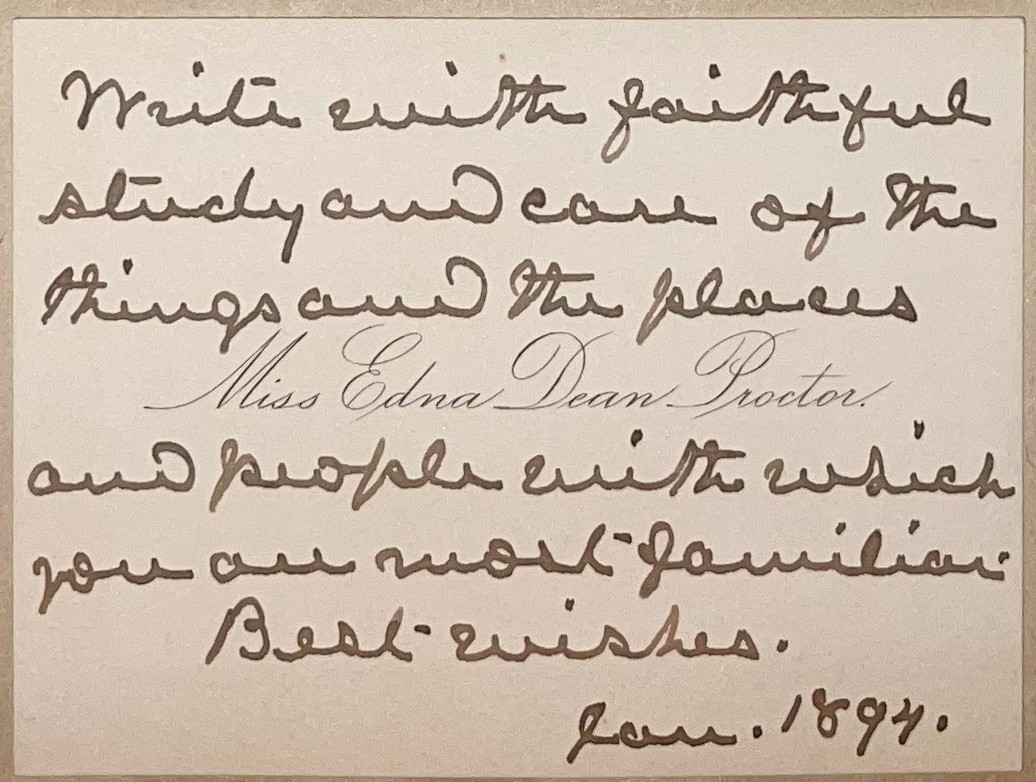 Write with faithful
study and care of the
things and the places
Miss Edna Dean Proctor.
and people with which
you are most familiar.
Best wishes.
Jan. 1894.